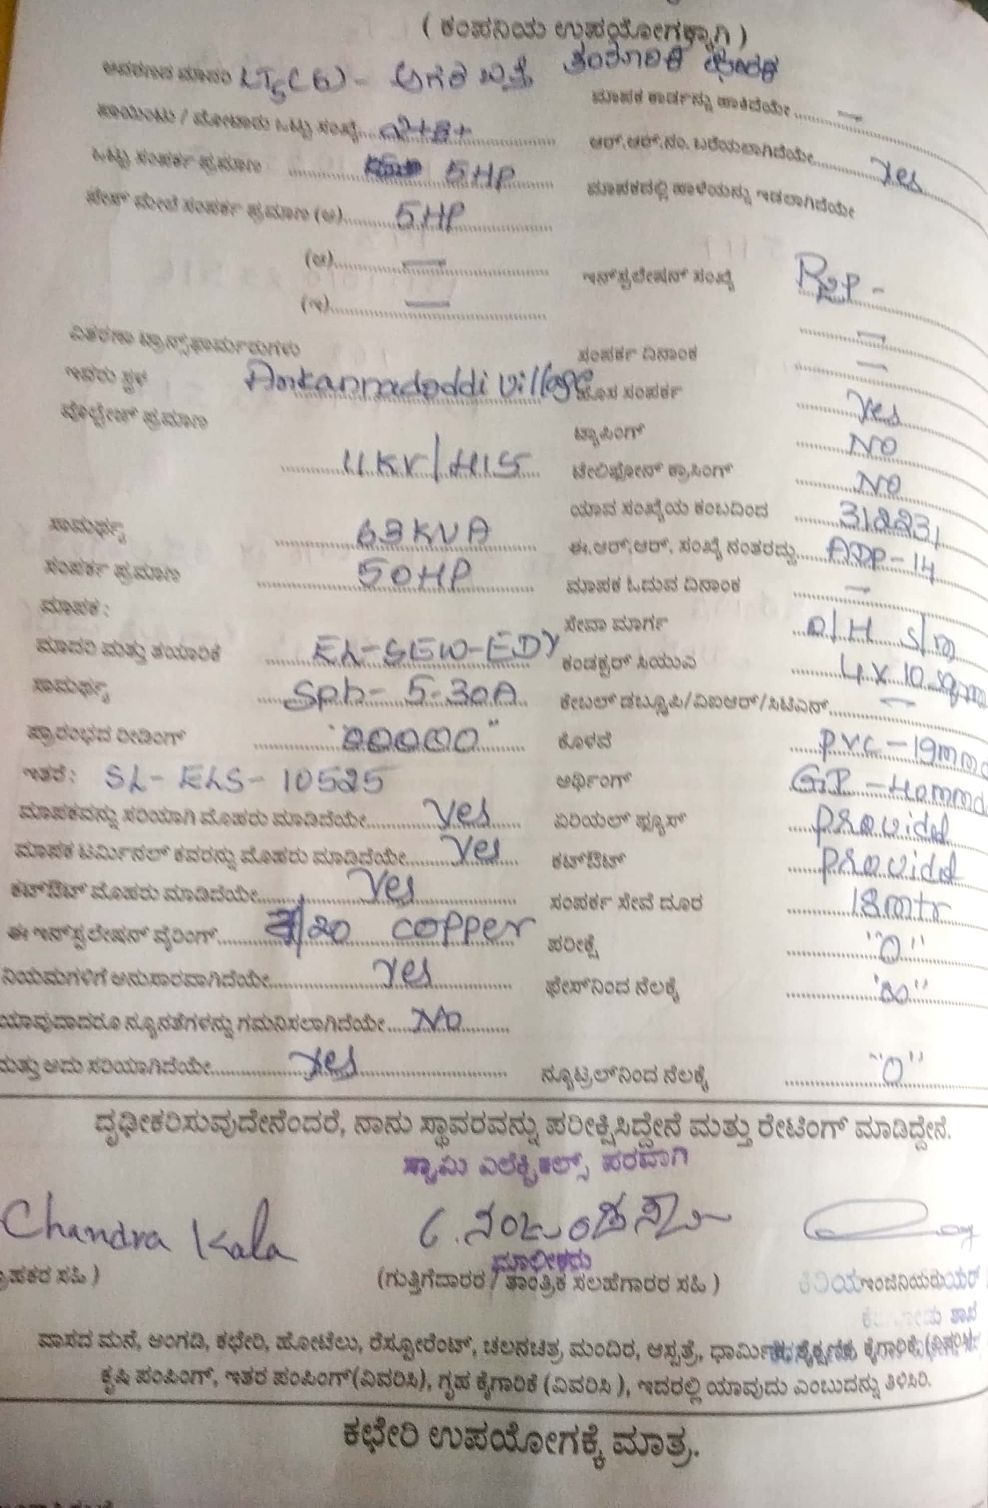 ( ಕಂಪನಿಯ ಉಪಯೋಗಕ್ಕಾಗಿ )
LT5(B) -
ಮಾಪಕ ಕಾರ್ಡನ್ನು ಹಾಕಿದೆಯೇ...... —
ಪಾಯಿಂಟು / ಮೋಟಾರು ಒಟ್ಟು ಸಂಖ್ಯೆ...
ಆರ್.ಆರ್.ನಂ. ಬರೆಯಲಾಗಿದೆಯೇ...... Yes
ಒಟ್ಟು ಸಂಪರ್ಕ ಪ್ರಮಾಣ ...... 5HP
ಮಾಪಕದಲ್ಲಿ ಹಾಳೆಯನ್ನು ಇಡಲಾಗಿದೆಯೇ
ಫೇಸ್ ಮೇಲೆ ಸಂಪರ್ಕ ಪ್ರಮಾಣ (ಅ)...... 5HP
(ಆ)...... —
ಇನ್‌ಸ್ಟಲೇಷನ್ ಸಂಖ್ಯೆ
(ಇ)...... —
ವಿತರಣಾ ಟ್ರಾನ್ಸ್‌ಫಾರ್ಮರುಗಳು
ಸಂಪರ್ಕ ದಿನಾಂಕ —
ಇದರು ಸ್ಥಳ Ankannadoddi village
ಹೊಸ ಸಂಪರ್ಕ Yes
ವೋಲ್ಟೇಜ್ ಪ್ರಮಾಣ 11KV/415
ಟ್ಯಾಪಿಂಗ್ NO
ಟೆಲಿಫೋನ್ ಕ್ರಾಸಿಂಗ್ NO
ಯಾವ ಸಂಖ್ಯೆಯ ಕಂಬದಿಂದ 312231
ಸಾಮರ್ಥ್ಯ 63KVA
ಈ.ಆರ್.ಆರ್. ಸಂಖ್ಯೆ ನಂತರದ್ದು ...... ADP-14
ಸಂಪರ್ಕ ಪ್ರಮಾಣ 50HP
ಮಾಪಕ ಓದುವ ದಿನಾಂಕ —
ಮಾಪಕ :
ಸೇವಾ ಮಾರ್ಗ O/H S/m
ಮಾದರಿ ಮತ್ತು ತಯಾರಿಕೆ
ಕಂಡಕ್ಟರ್ ಸಿಯುವ 4 x 10 sqmm
ಸಾಮರ್ಥ್ಯ 3ph - 5-30A
ಕೇಬಲ್ ಡಬ್ಲ್ಯೂಪಿ/ವಿಐಆರ್/ಸಿಟಿಎಸ್...... —
ಪ್ರಾರಂಭದ ರೀಡಿಂಗ್ "00000"
ಕೊಳವೆ PVC-19mm
ಇತರೆ : SL- ELS- 10525
ಅರ್ಥಿಂಗ್
ಮಾಪಕವನ್ನು ಸರಿಯಾಗಿ ಮೊಹರು ಮಾಡಿದೆಯೇ...... Yes
ಏರಿಯಲ್ ಫ್ಯೂಸ್ provided
ಮಾಪಕ ಟರ್ಮಿನಲ್ ಕವರನ್ನು ಮೊಹರು ಮಾಡಿದೆಯೇ...... Yes
ಕಟ್‌ಔಟ್ provided
ಕಟ್‌ಔಟ್ ಮೊಹರು ಮಾಡಿದೆಯೇ...... Yes
ಸಂಪರ್ಕ ಸೇವೆ ದೂರ 18mtr
ಈ ಇನ್‌ಸ್ಟಲೇಷನ್ ವೈರಿಂಗ್...... /20 copper
ಪರೀಕ್ಷೆ "0"
ನಿಯಮಗಳಿಗೆ ಅನುಸಾರವಾಗಿದೆಯೇ...... Yes
ಫೇಸ್‌ನಿಂದ ನೆಲಕ್ಕೆ
ಯಾವುದಾದರೂ ನ್ಯೂನತೆಗಳನ್ನು ಗಮನಿಸಲಾಗಿದೆಯೇ.... No
ಮತ್ತು ಅದು ಸರಿಯಾಗಿದೆಯೇ...... Yes
ನ್ಯೂಟ್ರಲ್‌ನಿಂದ ನೆಲಕ್ಕೆ "0"
ದೃಢೀಕರಿಸುವುದೇನೆಂದರೆ, ನಾನು ಸ್ಥಾವರವನ್ನು ಪರೀಕ್ಷಿಸಿದ್ದೇನೆ ಮತ್ತು ರೇಟಿಂಗ್ ಮಾಡಿದ್ದೇನೆ.
ಸ್ವಾಮಿ ಎಲೆಕ್ಟ್ರಿಕಲ್ಸ್ ಪರವಾಗಿ
Chandra Kala
ಮಾಲೀಕರು
ಹಕರ ಸಹಿ ) (ಗುತ್ತಿಗೆದಾರರ / ತಾಂತ್ರಿಕ ಸಲಹೆಗಾರರ ಸಹಿ ) ಕಿರಿಯ ಇಂಜಿನಿಯರ್
ವಾಸದ ಮನೆ, ಅಂಗಡಿ, ಕಛೇರಿ, ಹೋಟೆಲು, ರೆಸ್ಟೋರೆಂಟ್, ಚಲನಚಿತ್ರ ಮಂದಿರ, ಆಸ್ಪತ್ರೆ, ಕೈಗಾರಿಕೆ,
ಕೃಷಿ ಪಂಪಿಂಗ್, ಇತರ ಪಂಪಿಂಗ್(ವಿವರಿಸಿ), ಗೃಹ ಕೈಗಾರಿಕೆ (ವಿವರಿಸಿ ), ಇದರಲ್ಲಿ ಯಾವುದು ಎಂಬುದನ್ನು ತಿಳಿಸಿರಿ.
ಕಛೇರಿ ಉಪಯೋಗಕ್ಕೆ ಮಾತ್ರ.